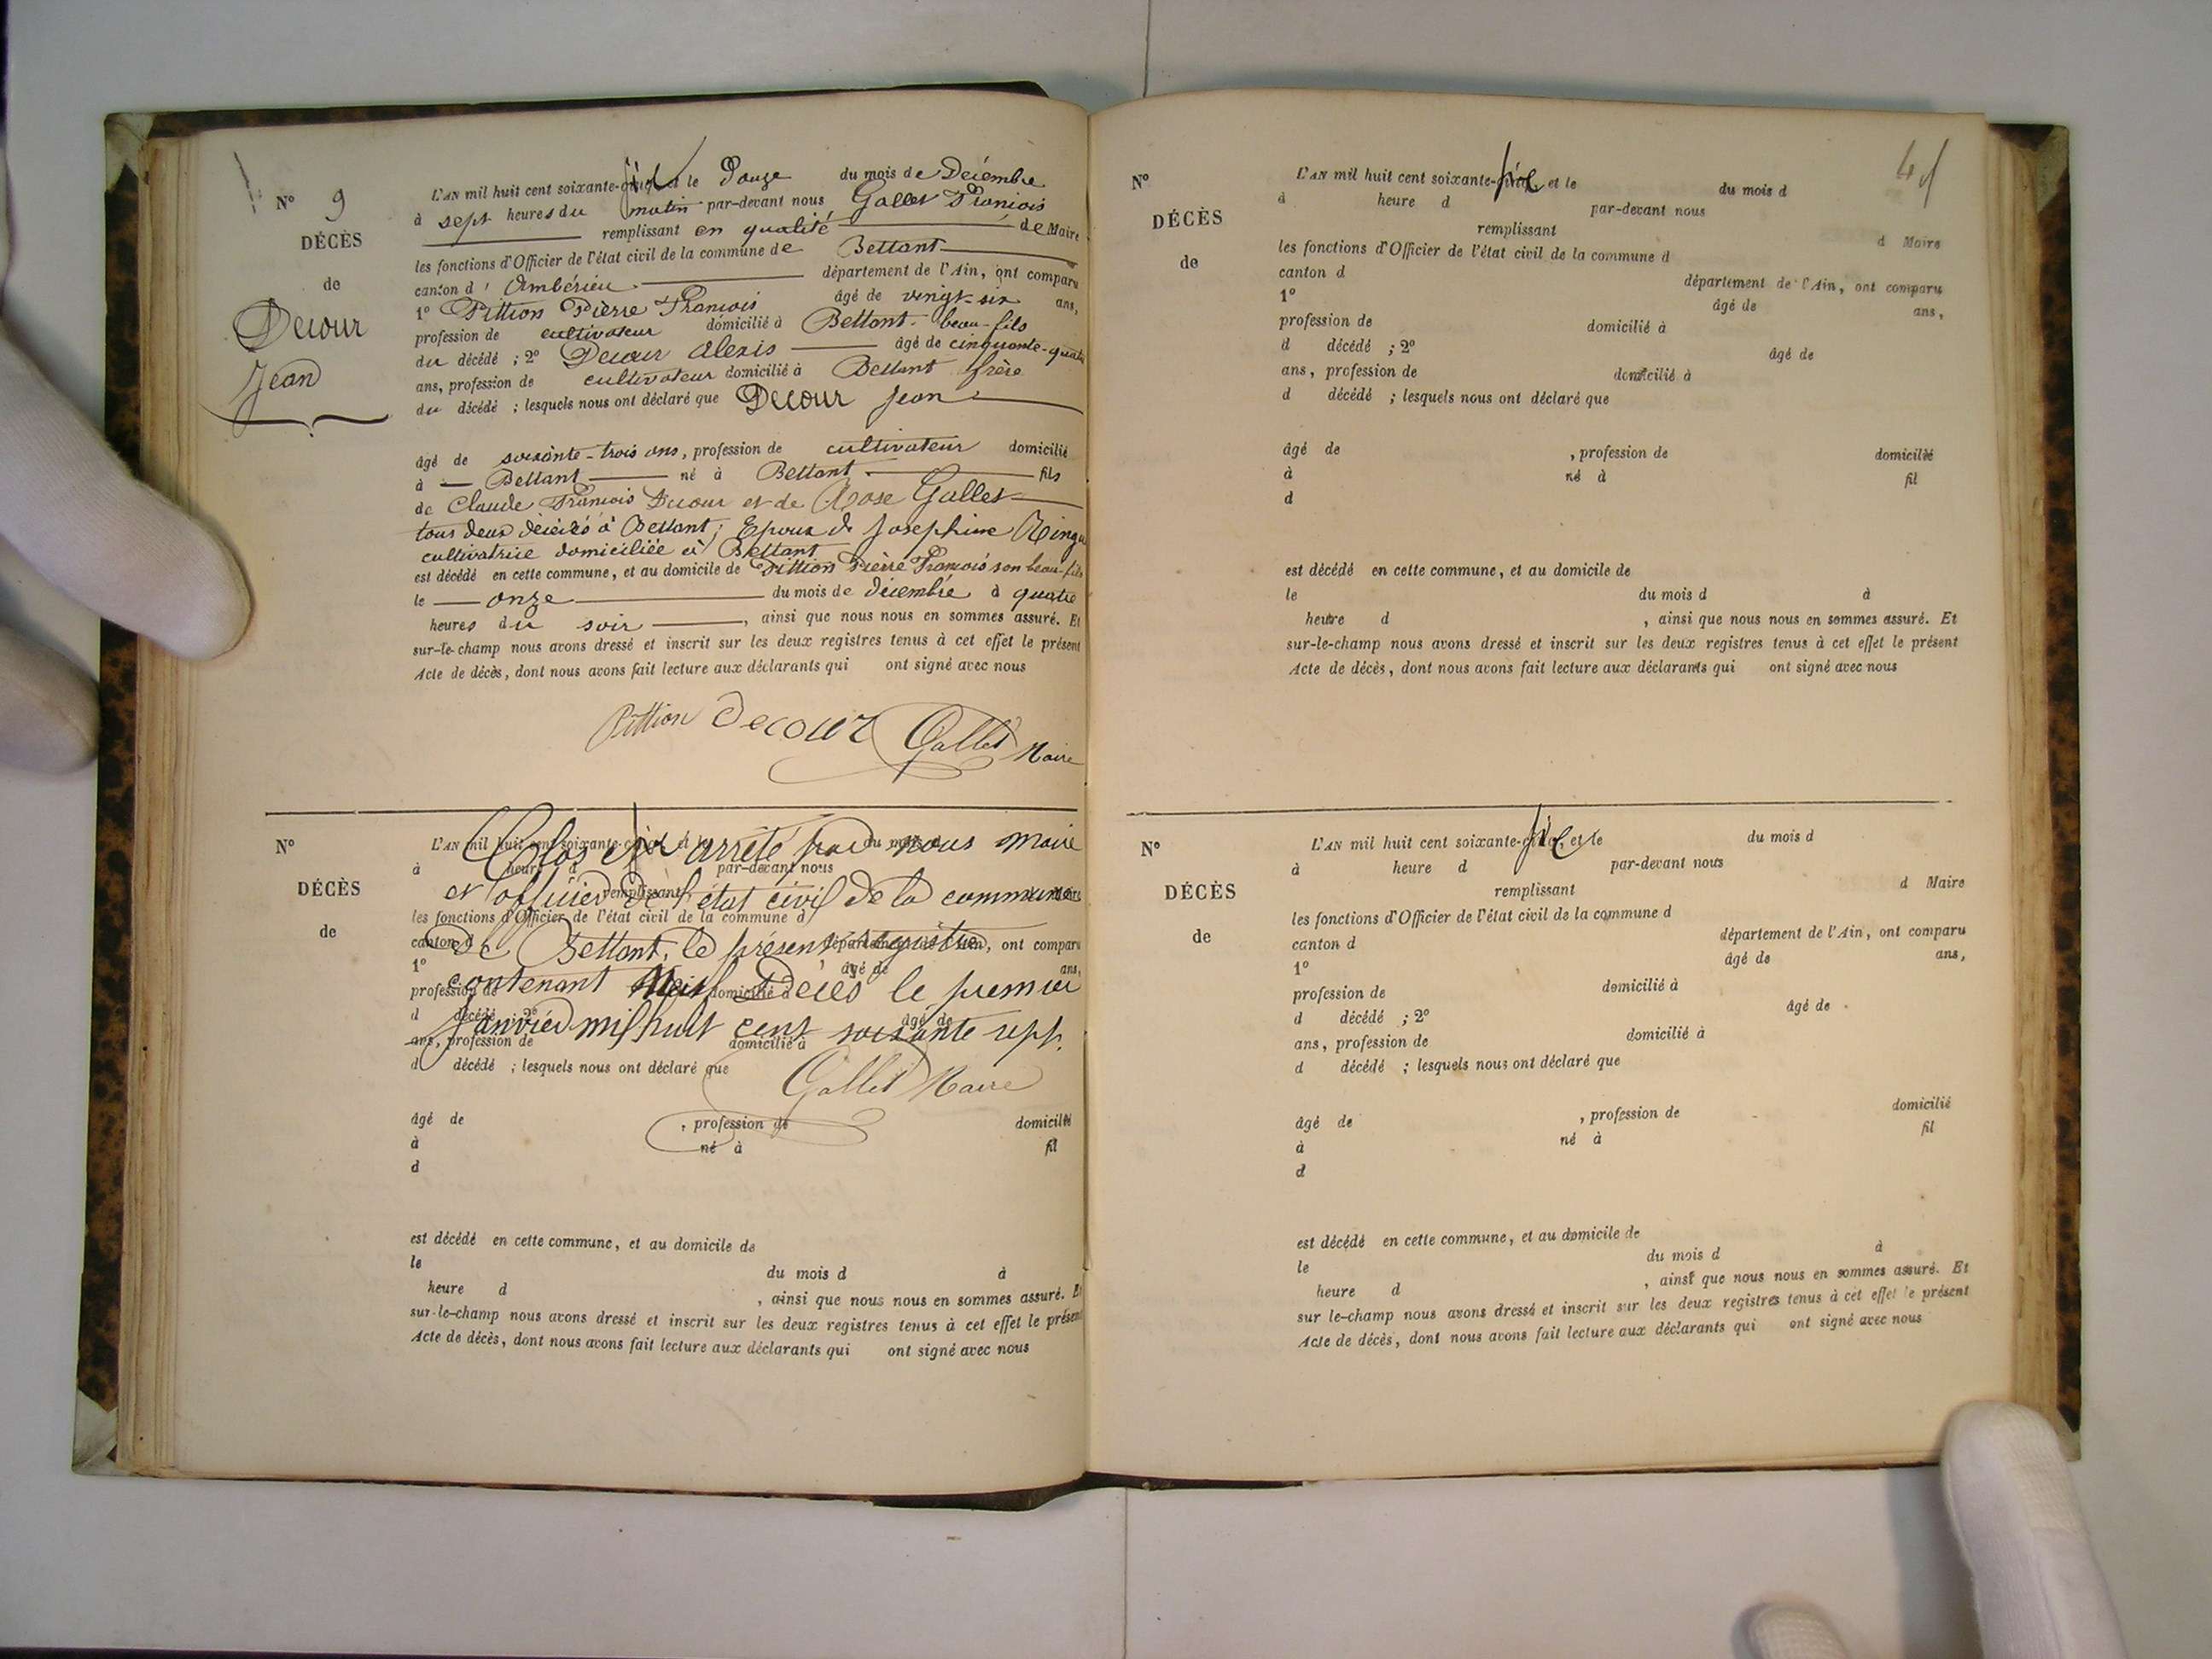 N° 9
DÉCÈS
de
Decour
Jean
L'AN mil huit cent soixante-six et le Douze du mois de Décembre
à sept heures du matin par-devant nous Gallet François
remplissant en qualité de Maire
les fonctions d'Officier de l'état civil de la commune de Bettant
canton d'Ambérieu département de l'Ain, ont comparu
1° Pittion Pierre François âgé de vingt-six ans,
profession de cultivateur domicilié à Bettant beau-fils
du décédé ; 2° Decour Alexis âgé de cinquante-quatre
ans, profession de cultivateur domicilié à Bettant frère
du décédé ; lesquels nous ont déclaré que Decour Jean
âgé de soixante-trois ans, profession de cultivateur domicilié
à Bettant né à Bettant fils
de Claude François Decour et de Rose Gallet
tous deux décédés à Bettant ; Epoux de Josephine
cultivatrice domiciliée à Bettant
est décédé en cette commune, et au domicile de Pittion Pierre François son beau-fils
le onze du mois de décembre à quatre
heures du soir , ainsi que nous nous en sommes assuré. Et
sur-le-champ nous avons dressé et inscrit sur les deux registres tenus à cet effet le présent
Acte de décès, dont nous avons fait lecture aux déclarants qui ont signé avec nous
Pittion Decour Gallet Maire
N°
DÉCÈS
de
L'AN mil huit cent soixante- du mois d
à heure d par-devant nous
remplissant
les fonctions d'Officier de l'état civil de la commune d
canton d département de l'Ain, ont comparu
1° âgé de ans,
profession de domicilié à
d décédé ; 2° âgé de
ans, profession de domicilié à
d décédé ; lesquels nous ont déclaré que
Clos et arrêté par nous maire
et officier de l'état civil de la commune
de Bettant, le présent registre
contenant Neuf Décès le premier
Janvier mil huit cent soixante sept.
Gallet Maire
âgé de , profession de domicilié
à né à fil
d
est décédé en cette commune, et au domicile de
le du mois d à
heure d , ainsi que nous nous en sommes assuré. Et
sur-le-champ nous avons dressé et inscrit sur les deux registres tenus à cet effet le présent
Acte de décès, dont nous avons fait lecture aux déclarants qui ont signé avec nous
N°
DÉCÈS
de
L'AN mil huit cent soixante-six et le du mois d
à heure d par-devant nous
remplissant d Maire
les fonctions d'Officier de l'état civil de la commune d
canton d département de l'Ain, ont comparu
1° âgé de ans,
profession de domicilié à
d décédé ; 2° âgé de
ans, profession de domicilié à
d décédé ; lesquels nous ont déclaré que
âgé de , profession de domicilié
à né à fil
d
est décédé en cette commune, et au domicile de
le du mois d à
heure d , ainsi que nous nous en sommes assuré. Et
sur-le-champ nous avons dressé et inscrit sur les deux registres tenus à cet effet le présent
Acte de décès, dont nous avons fait lecture aux déclarants qui ont signé avec nous
N°
DÉCÈS
de
L'AN mil huit cent soixante-six et le du mois d
à heure d par-devant nous
remplissant d Maire
les fonctions d'Officier de l'état civil de la commune d
canton d département de l'Ain, ont comparu
1° âgé de ans,
profession de domicilié à
d décédé ; 2° âgé de
ans, profession de domicilié à
d décédé ; lesquels nous ont déclaré que
âgé de , profession de domicilié
à né à fil
d
est décédé en cette commune, et au domicile de
le du mois d à
heure d , ainsi que nous nous en sommes assuré. Et
sur le-champ nous avons dressé et inscrit sur les deux registres tenus à cet effet le présent
Acte de décès, dont nous avons fait lecture aux déclarants qui ont signé avec nous